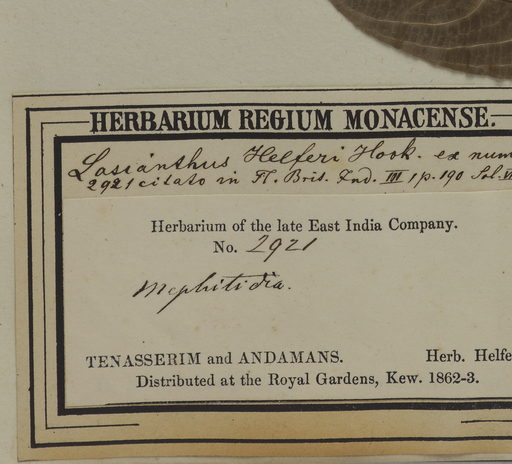 HERBARIUM REGIUM MONACENSE.
Lasianthus Helferi Hook. ex num
2921 citato in Fl. Brit. Ind. III, p. 190
Herbarium of the late East India Company.
No. 2921
Mephitidia.
TENASSERIM and ANDAMANS. Herb. Helfe
Distributed at the Royal Gardens, Kew. 1862-3.